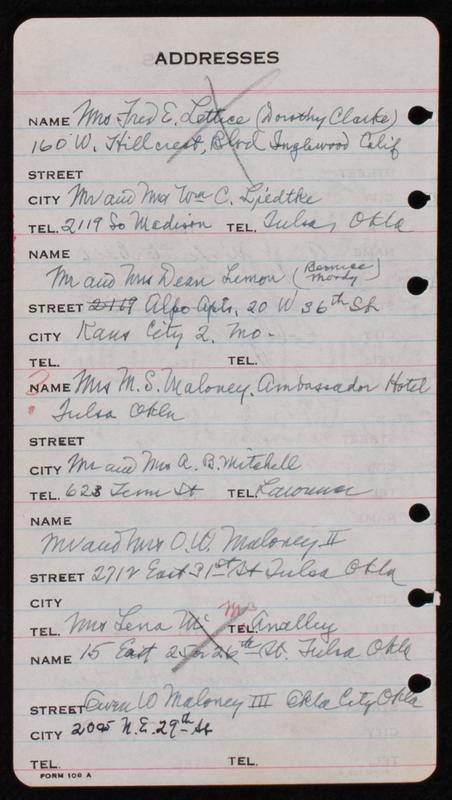 ADDRESSES
NAME Mrs. Fred E. Lettice (Dorothy Clarke)
160 W. Hillcrest, Blvd Inglewood Calif
STREET
CITY Mr and Mrs Wm C. Liedtke
TEL. 2119 So Madison TEL. Tulsa, Okla
NAME
Mr and Mrs Dean Lemon (Bernice Moody)
STREET 2119 Alpo Apts, 20 W 36th St
CITY Kans City 2, Mo.
TEL. TEL.
NAME Mrs M. S. Maloney. Ambassador Hotel
Tulsa Okla
STREET
CITY Mr and Mrs A. B. Mitchell
TEL. 623 Tenn St TEL. Lawrence
NAME
Mr and Mrs O. W. Maloney II
STREET 2712 East 31st St Tulsa Okla
CITY
TEL. Mrs Lena Mc TEL. Analley
NAME 15 East 26th St. Tulsa Okla
STREET Owen W Maloney III Okla City Okla
CITY 2005 N.E. 29th St
TEL. TEL.
FORM 106 A